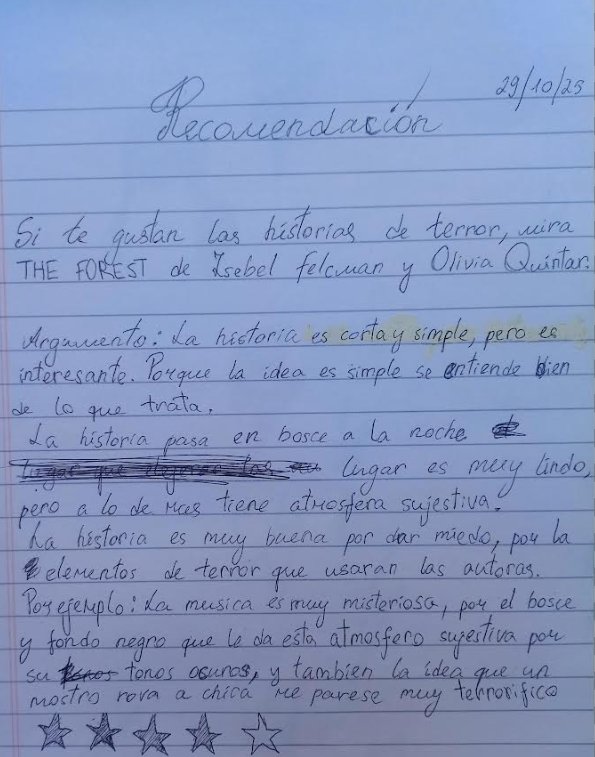 29/10/25
Recomendación
Si te gustan las historias de terror, mira
THE FOREST de Isebel Felcman y Olivia Quintar.
Argumento: La historia es corta y simple, pero es
interesante. Porque la idea es simple se entiende bien
de lo que trata.
La historia pasa en bosce a la noche
lugar es muy lindo,
pero a lo de mas tiene atmosfera sujestiva.
La historia es muy buena por dar miedo, por la
elementos de terror que usaran las autoras.
Por ejemplo: La musica es muy misteriosa, por el bosce
y fondo negro que le da esta atmosfero sujestiva por
su tonos osuros, y tambien la idea que un
mostro rova a chica me parese muy terrorifico